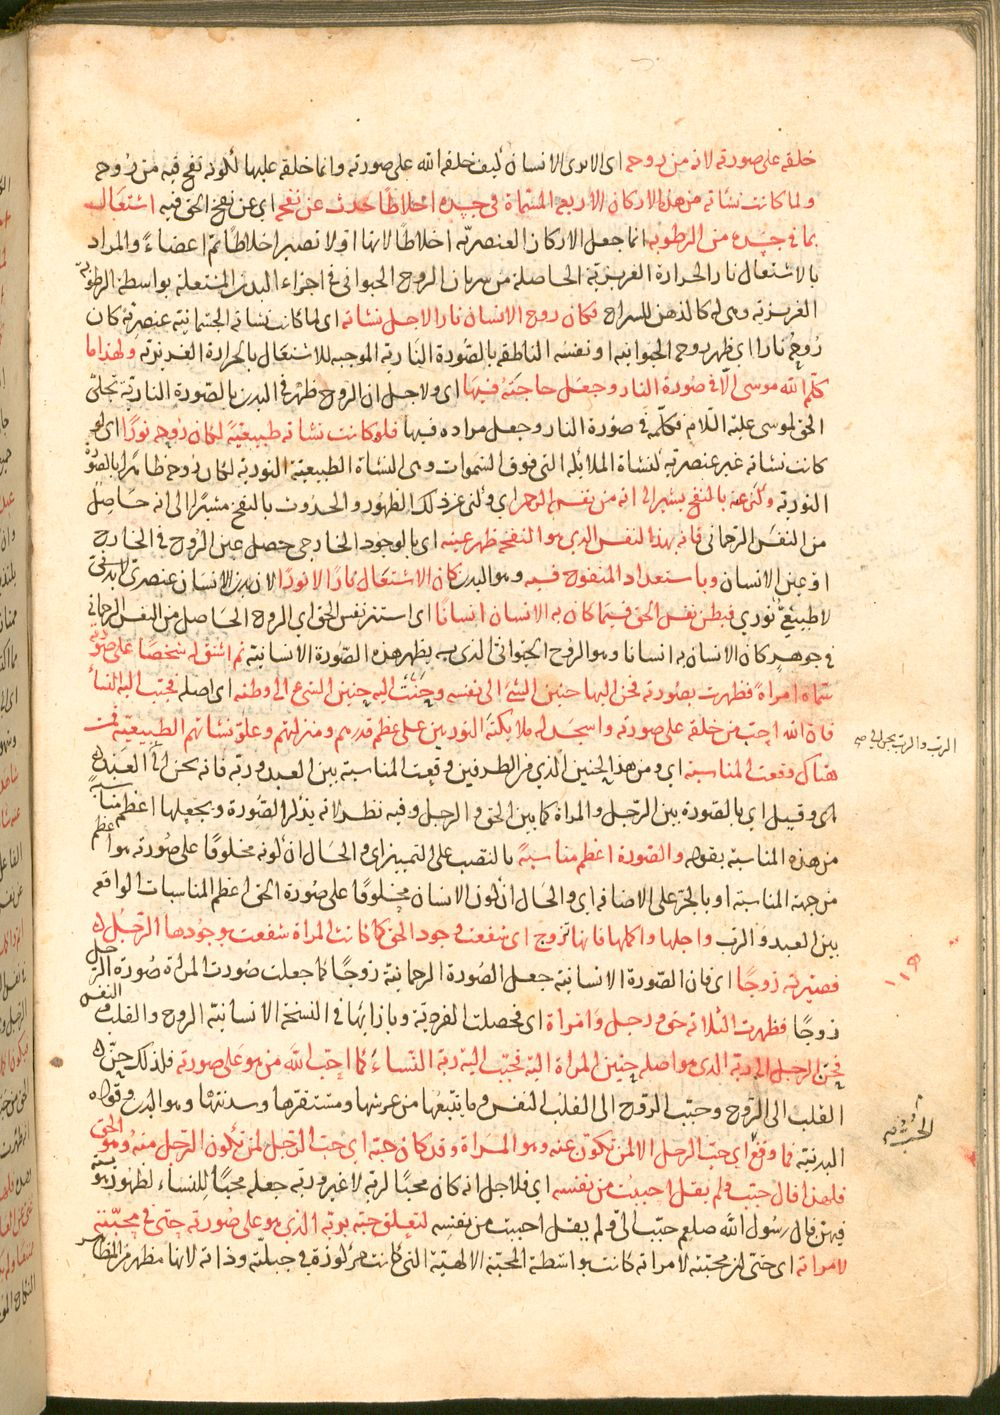 خلقه على صورته لانه من روحه اى الا ترى الانسان كيف خلقه الله على صورته وانما خلقه عليها لكونه نفخ فيه من روحه
ولما كانت نشأته من هذه الاركان الاربعة المسماة فى جسده اخلاطا حدث عن نفخه اى عن نفخ الحق فيه اشتعال
بما فى جسده من الرطوبة انما جعل الاركان العنصرية اخلاطا لانها اولا تصير اخلاطا ثم اعضاء والمراد
بالاشتعال نار الحرارة الغريزية الحاصلة من سريان الروح الحيوانى فى اجزاء البدن المشتعلة بواسطة الرطوبة
الغريزية وهى له كالدهن للسراج فكان روح الانسان نارا لاجل نشأته اى لما كانت نشأته الجسمانية عنصرية كان
روحه نارا اى ظهر روحه الحيوانية او نفسه الناطقة بالصورة النارية الموجبة للاشتعال بالحرارة الغريزية ولهذا ما
كلم الله موسى الا فى صورة النار وجعل حاجته فيها اى ولاجل ان الروح ظهر فى البدن بالصورة النارية تجلى
الحق لموسى عليه السلام فكلمه فى صورة النار وجعل مراده فيها فلو كانت نشأته طبيعية لكان روحه نورا اى لو
كانت نشأته غير عنصرية كنشأة الملائكة التى فوق السموات وهى النشأة الطبيعية النورية لكان روحه ظاهرا بالصورة
النورية وكنى عنه بالنفخ يشير الى انه من نفس الرحمن اى وكنى عن ذلك الظهور والحدوث بالنفخ مشيرا الى انه حاصل
من النفس الرحمانى فانه بهذا النفس الذى هو النفخة ظهر عينه اى بالوجود الخارجى حصل عين الروح فى الخارج
او عين الانسان وباستعداد المنفوخ فيه وهو البدن كان الاشتعال نارا لا نورا لان بدن الانسان عنصرى
لا طبيعى نورى فبطن نفس الحق فيما كان به الانسان انسانا اى استتر نفس الحق اى الروح الحاصل من النفس الرحمانى
فى جوهر كان الانسان به انسانا وهو الروح الحيوانى الذى به يظهر هذه الصورة الانسانية ثم اشتق له شخصا على صورته
سماه امرأة فظهرت بصورته فحن اليها حنين الشئ الى نفسه وحنت اليه حنين الشئ الى وطنه اى اصله فحبب اليه النساء
فان الله احب من خلقه على صورته واسجد له ملائكته النوريين على عظم قدرهم ومنزلتهم وعلو نشأتهم الطبيعية فمن
هناك وقعت المناسبة اى ومن هذا الحنين الذى من الطرفين وقعت المناسبة بين العبد وربه فانه يحن الى العبد
اى وقيل اى بالصورة بين الرجل والمرأة كما بين الحق والرجل وفيه نظر لانه يذكر الصورة ويجعلها اعظم مناسبة
من هذه المناسبة بقوله والصورة اعظم مناسبة بالنصب على التمييز اى والحال ان كونه مخلوقا على صورته هو اعظم
من جهة المناسبة او بالجر على الاضافة اى والحال ان كون الانسان مخلوقا على صورة الحق اعظم المناسبات الواقعة
بين العبد والرب واجلها واكملها فانها زوج اى شفعت وجود الحق كما كانت المرأة شفعت بوجودها الرجل
فصيرته زوجا اى فان الصورة الانسانية جعل الصورة الرحمانية زوجا كما جعلت صورت المرأة صورة الرجل
زوجا فظهرت الثلاثة حق ورجل وامرأة اى فحصلت الفردية وبازائها فى النسخة الانسانية الروح والقلب والنفس
فحن الرجل الى ربه الذى هو اصله حنين المرأة اليه فحبب اليه ربه النساء كما احب الله من هو على صورته فلذلك حن
القلب الى الروح وحبب الروح الى القلب النفس وما يتبعها من عرشها ومستقرها وسدنتها وهو البدن وقواه
البدنية فما وقع اى حب الرجل الا لمن تكون عنه وهو المرأة وقد كان حبه اى حب الرجل لمن تكون الرجل منه وهو الحق
فلهذا قال حبب ولم يقل احببت من نفسه اى فلاجل انه كان محبا لربه لا غير وربه جعله محبا للنساء لظهوره
فيهن قال رسول الله صلعم حبب الى ولم يقل احببت من نفسه لتعلق حبه بربه الذى هو على صورته حتى فى محبته
لامرأته اى حتى ان محبته لامرأته كانت بواسطة المحبة الالهية التى كانت مركوزة فى جبلته وذاته لانها مظهر من المظاهر
الرب والرب يحن الى
١١٩